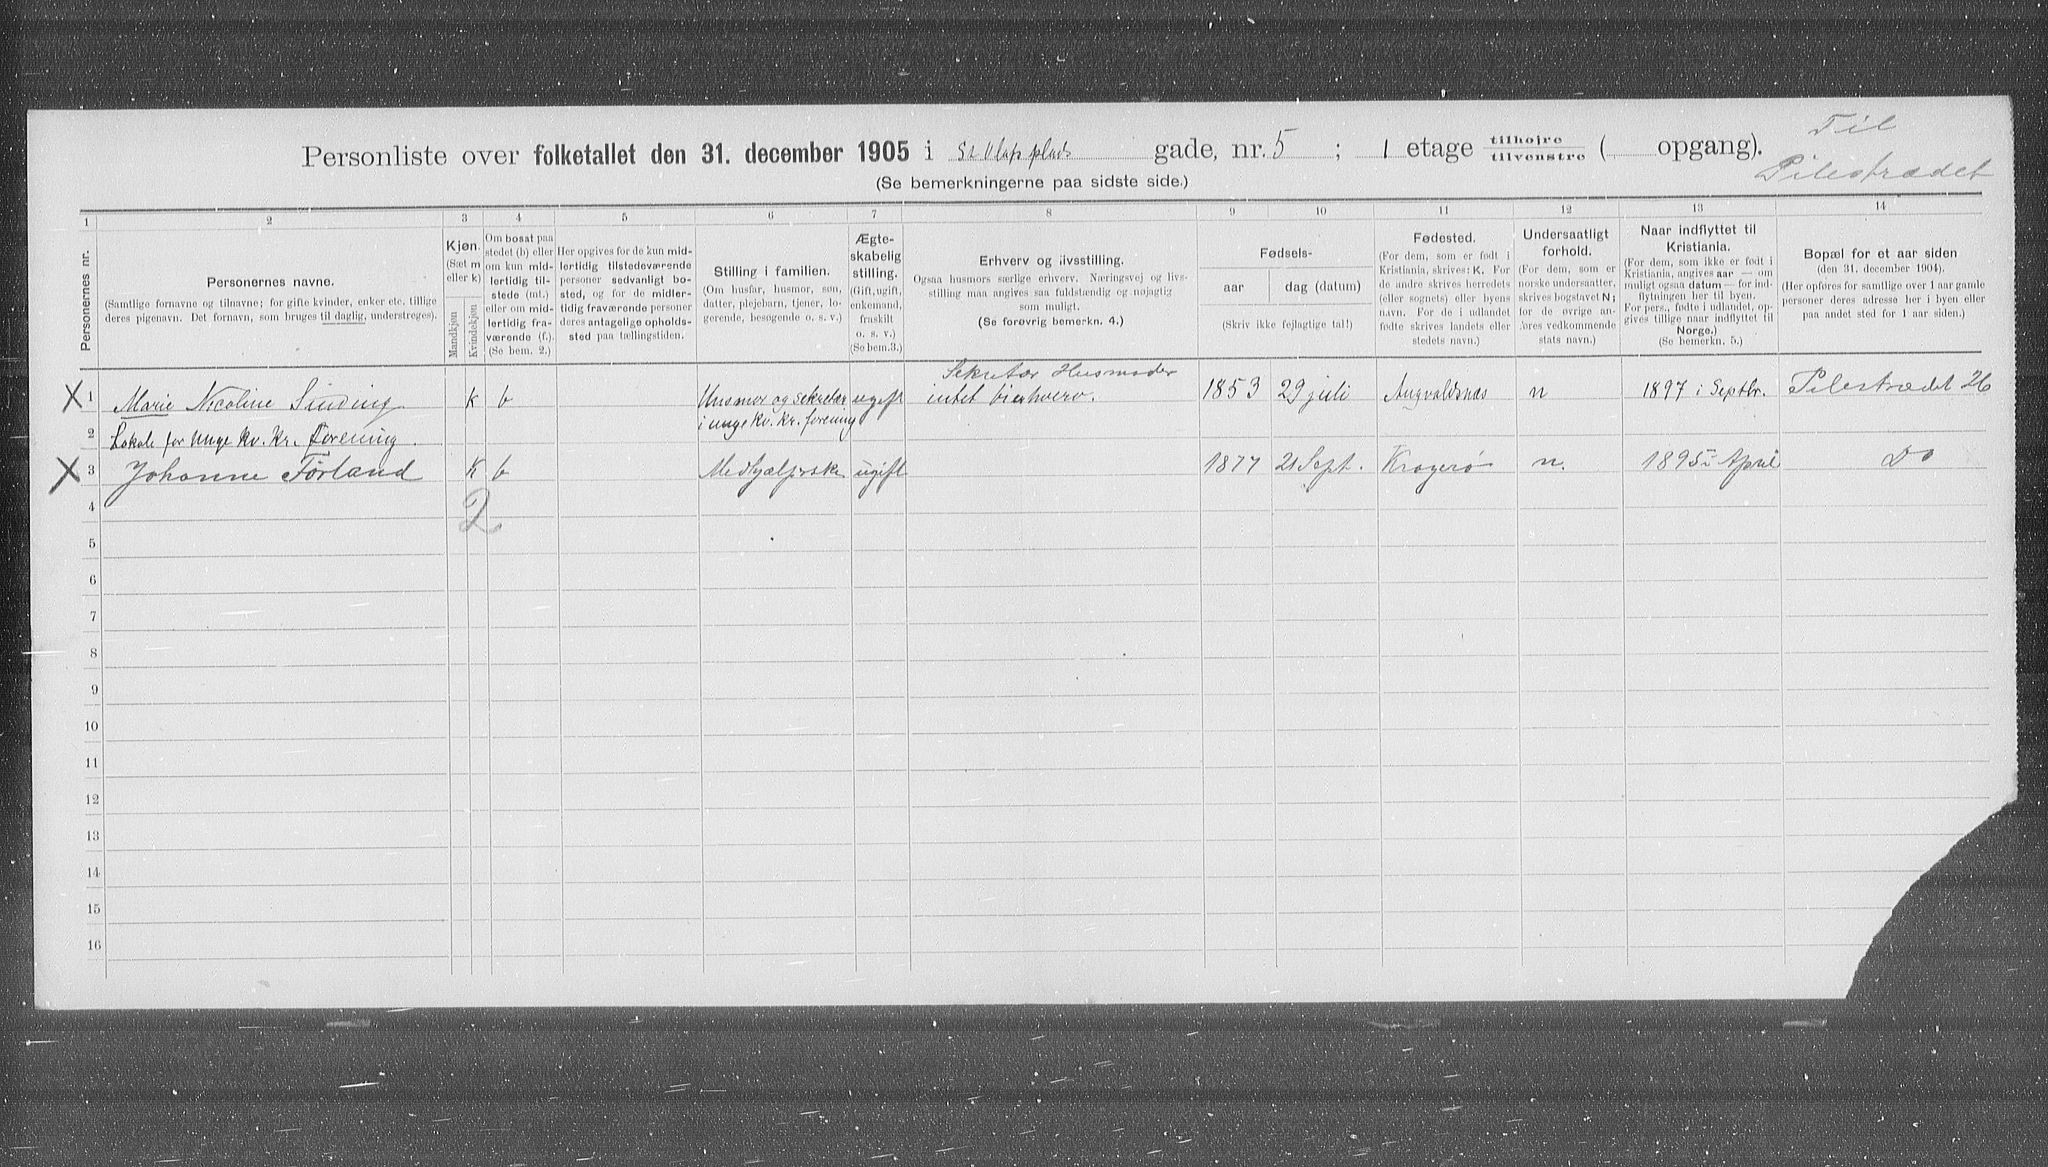 Personliste over folketallet den 31. december 1905 i St. Olafs plads gade, nr. 5 ; 1 etage tilhøjre tilvenstre ( opgang).
Til
Pilestrædet
(Se bemerkningerne paa sidste side.)
1 2 3 4 5 6 7 8 9 10 11 12 13 14
Personernes nr.
Personernes navne.
(Samtlige fornavne og tilnavne; for gifte kvinder, enker etc. tillige
deres pigenavn. Det fornavn, som bruges til daglig, understreges).
Kjøn.
(Sæt m
eller k)
Mandkjøn
Kvindekjøn
Om bosat paa
stedet (b) eller
om kun mid-
lertidig til-
stede (mt.)
eller om mid-
lertidig fra-
værende (f.).
(Se bem. 2.)
Her opgives for de kun mid-
lertidig tilstedeværende
personer sedvanligt bo-
sted, og for de midler-
tidig fraværende personer
deres antagelige opholds-
sted paa tællingstiden.
Stilling i familien.
(Om husfar, husmor, søn,
datter, plejebarn, tjener, lo-
gerende, besøgende o. s. v.)
Ægte-
skabelig
stilling.
(Gift, ugift,
enkemand,
fraskilt
o. s. v.)
(Se bem. 3.)
Erhverv og livsstilling.
Ogsaa husmors særlige erhverv. Næringsvej og livs-
stilling maa angives saa fuldstændig og nøjagtig
som muligt.
(Se forøvrig bemerkn. 4.)
Fødsels-
aar
dag (datum)
(Skriv ikke fejlagtige tal!)
Fødested.
(For dem, som er født i
Kristiania, skrives: K. For
de andre skrives herredets
(eller sognets) eller byens
navn. For de i udlandet
fødte skrives landets eller
stedets navn.)
Undersaatligt
forhold.
(For dem, som er
norske undersaatter,
skrives bogstavet N;
for de øvrige an-
føres vedkommende
stats navn.)
Naar indflyttet til
Kristiania.
(For dem, som ikke er født i
Kristiania, angives aar — om
muligt ogsaa datum — for ind-
flytningen her til byen.
For pers., fødte i udlandet, op-
gives tillige naar indflyttet til
Norge.)
(Se bemerkn. 5.)
Bopæl for et aar siden
(den 31. december 1904).
(Her opføres for samtlige over 1 aar gamle
personer deres adresse her i byen eller
paa andet sted for 1 aar siden.)
X 1 Marie Nicoline Sinding k b Husmor og Sekretær i unge kv. kr. forening ugift Sekretær Husmoder intet bierhverv. 1853 29 juli Augvaldsnæs n 1897 i Septbr. Pilestrædet 26
2 Lokale for Unge Kv. Kr. Forening.
X 3 Johanne Førland K b Medhjælperske ugift 1877 21 Sept. Kragerø n. 1895 i April Do
2
4
5
6
7
8
9
10
11
12
13
14
15
16